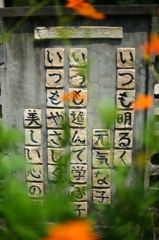 いつも明るく
元気な子
いつも進んで学ぶ子
いつもやさしく
美しい心の